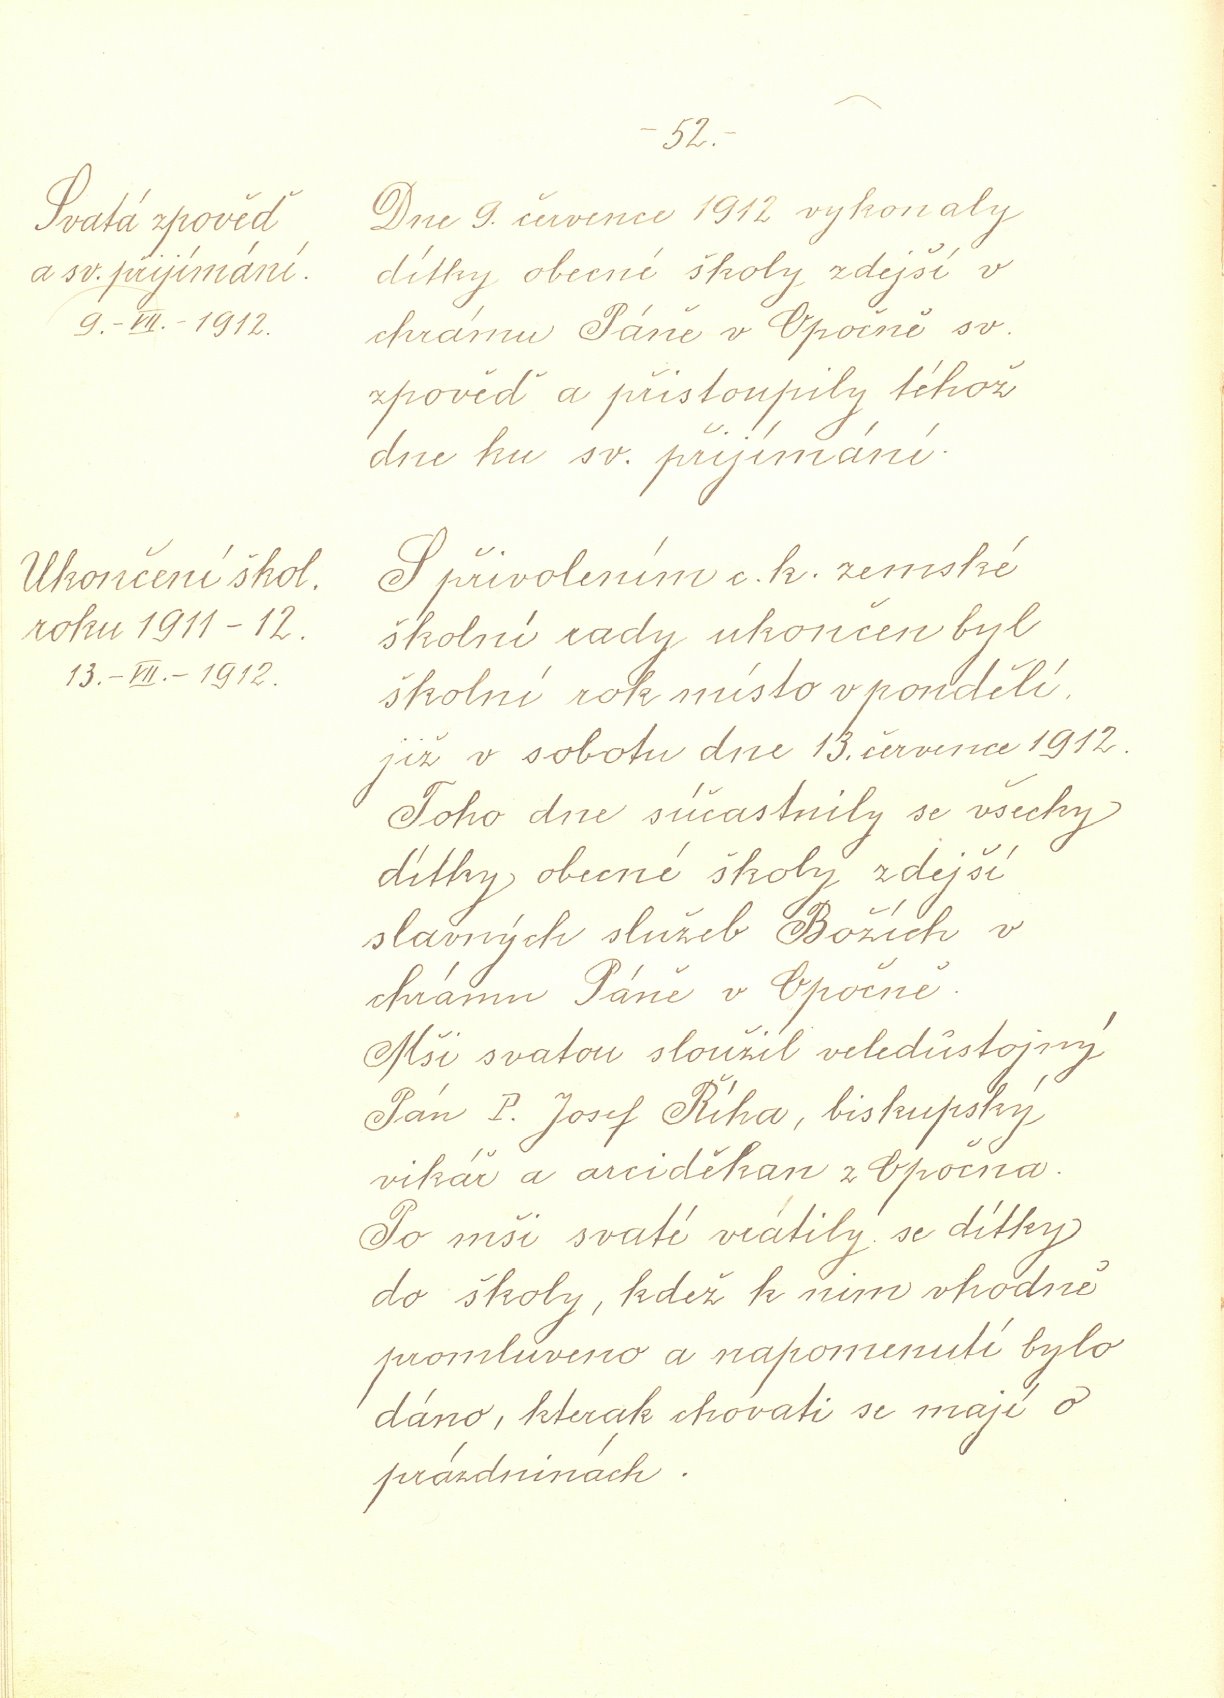 - 52. -
Svatá zpověď
a sv. přijímání.
9. - VII. - 1912.
Dne 9. července 1912 vykonaly
dítky obecné školy zdejší v
chrámu Páně v Opočně sv.
zpověď a přistoupily téhož
dne ku sv. přijímání.
Ukončení škol.
roku 1911 - 12.
13. - VII. - 1912.
S přivolením c. k. zemské
školní rady ukončen byl
školní rok místo v pondělí,
již v sobotu dne 13. července 1912.
Toho dne súčastnily se všecky
dítky obecné školy zdejší
slavných služeb Božích v
chrámu Páně v Opočně.
Mši svatou sloužil veledůstojný
Pán P. Josef Říha, biskupský
vikář a arciděkan z Opočna.
Po mši svaté vrátily se dítky
do školy, kdež k nim vhodně
promluveno a napomenutí bylo
dáno, kterak chovati se mají o
prázdninách.